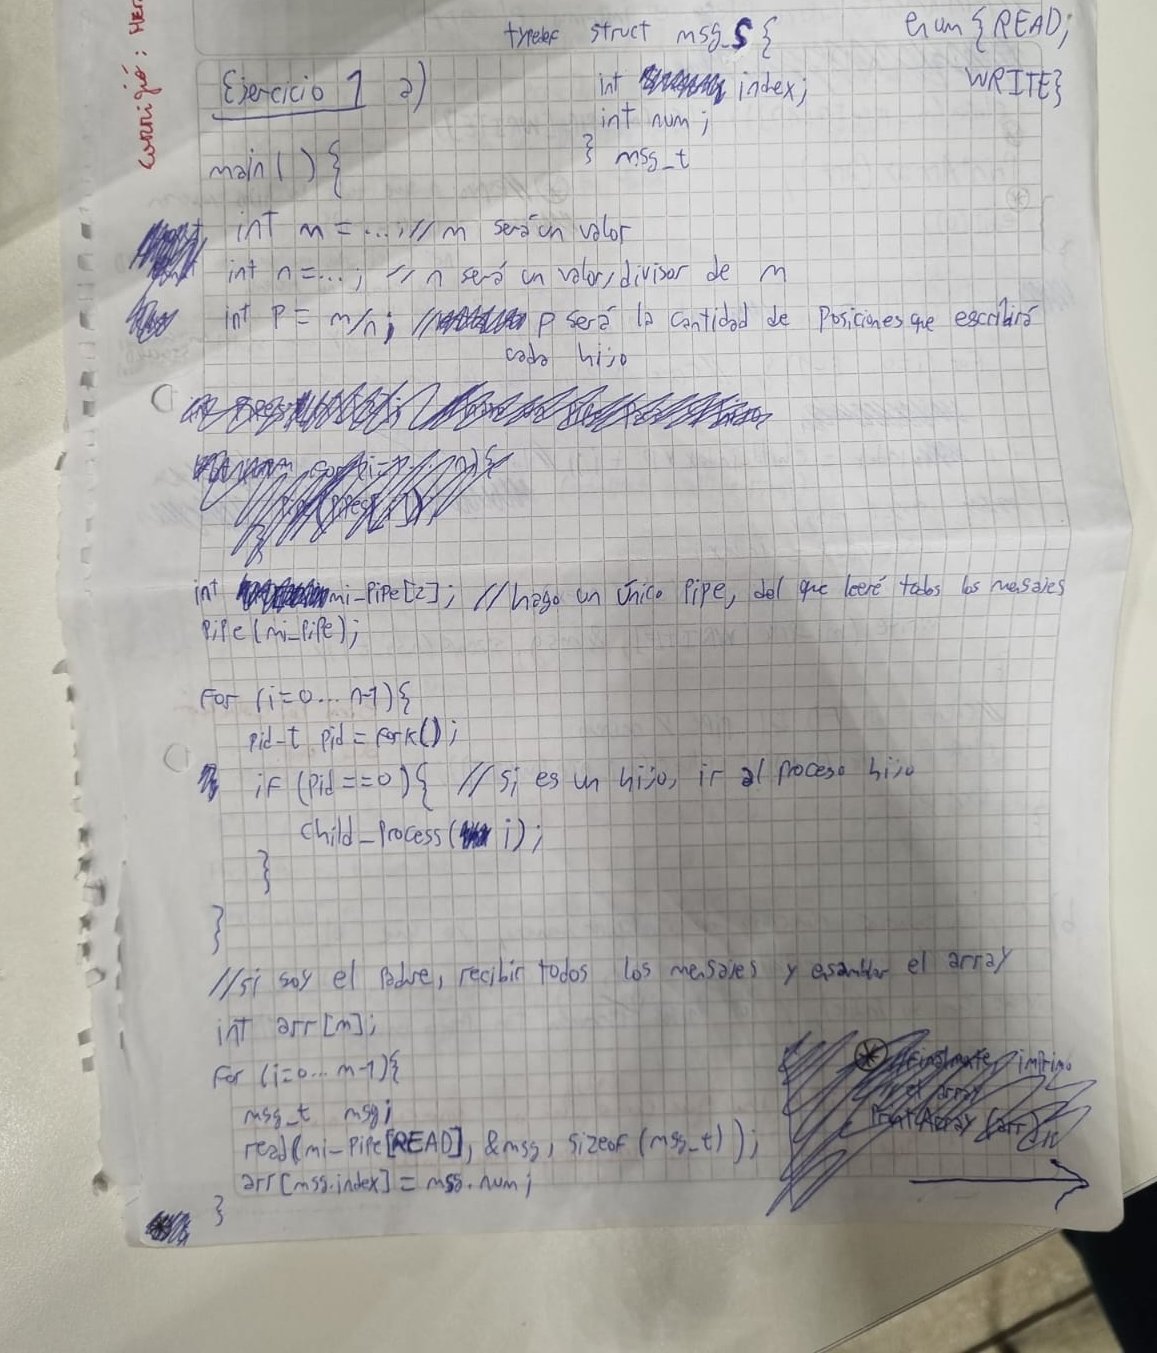 Corrigió: Her
typedef struct msg_s {
int index;
int num;
} msg_t
enum {READ;
WRITE}
Ejercicio 1 a)
main( ) {
int m = ...; // m será un valor
int n = ...; // n será un valor, divisor de m
int p = m/n; // p será la cantidad de posiciones que escribirá
cada hijo
int mi_pipe[2]; // hago un único pipe, del que leeré todos los mensajes
pipe(mi_pipe);
For (i=0... n-1) {
pid_t pid = fork();
if (pid==0) { // si es un hijo, ir al proceso hijo
child_process( i);
}
}
// si soy el padre, recibir todos los mensajes y el array
int arr [m];
For (i=0... m-1) {
msg_t msg;
read(mi_pipe[READ], &msg, sizeof (msg_t));
arr[msg.index] = msg.num;
}
// Finalmente, imprimo
el array
PrintArray (arr);